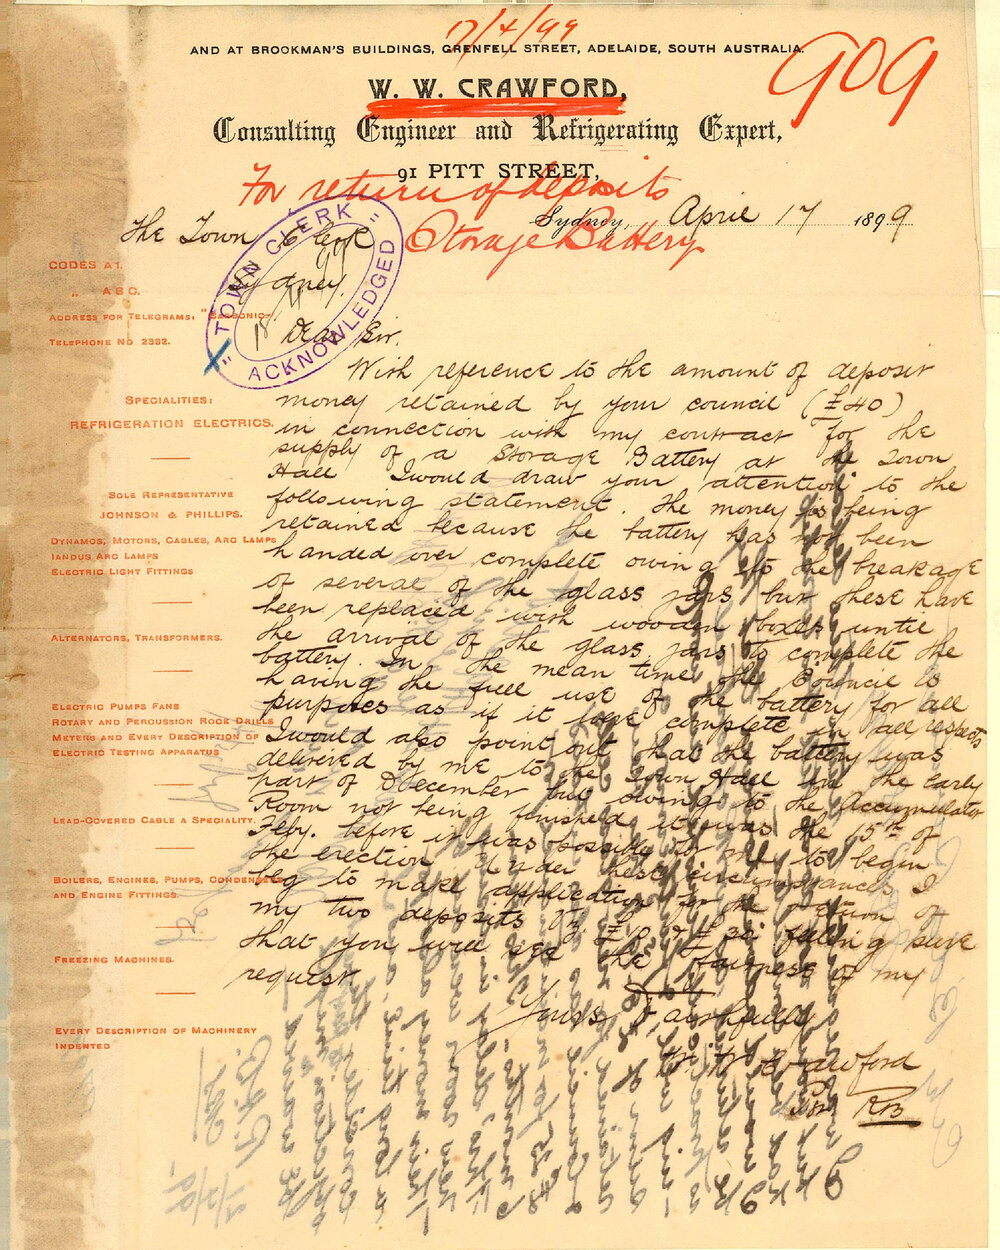 17/4/99
AND AT BROOKMAN'S BUILDINGS, GRENFELL STREET, ADELAIDE, SOUTH AUSTRALIA.
909
W. W. CRAWFORD,
Consulting Engineer and Refrigerating Expert,
91 PITT STREET,
For return of deposits
Storage Battery
Sydney, April 17 1899
The Town Clerk
Sydney.
"TOWN CLERK"
ACKNOWLEDGED
18/4
Dear Sir,
CODES A1.
" ABC.
ADDRESS FOR TELEGRAMS:
TELEPHONE NO 2362.
SPECIALITIES:
REFRIGERATION ELECTRICS.
SOLE REPRESENTATIVE
JOHNSON & PHILLIPS.
DYNAMOS, MOTORS, CABLES, ARC LAMPS
IANDUS ARC LAMPS
ELECTRIC LIGHT FITTINGS
ALTERNATORS, TRANSFORMERS.
ELECTRIC PUMPS FANS
ROTARY AND PERCUSSION ROCK DRILLS
METERS AND EVERY DESCRIPTION OF
ELECTRIC TESTING APPARATUS
LEAD-COVERED CABLE A SPECIALITY.
BOILERS, ENGINES, PUMPS, CONDENSERS
AND ENGINE FITTINGS.
FREEZING MACHINES.
EVERY DESCRIPTION OF MACHINERY
INDENTED
With reference to the amount of deposit
money retained by your council (£40)
in connection with my contract for the
supply of a Storage Battery at the Town
Hall I would draw your attention to the
following statement. The money is being
retained because the battery has not been
handed over complete owing to the breakage
of several of the glass jars but these have
been replaced with wooden boxes until
the arrival of the glass jars to complete the
battery. In the mean time the Council is
having the full use of the battery for all
purposes as if it were complete in all respects
I would also point out that the battery was
delivered by me to the Town Hall in the early
part of December but owing to the Accumulator
Room not being finished it was the 15th of
Feby. before it was possible for me to begin
the erection. Under these circumstances I
beg to make application for the return of
my two deposits viz £10 & £30 feeling sure
that you will see the fairness of my
request
Yours faithfully
W. W. Crawford
per RB